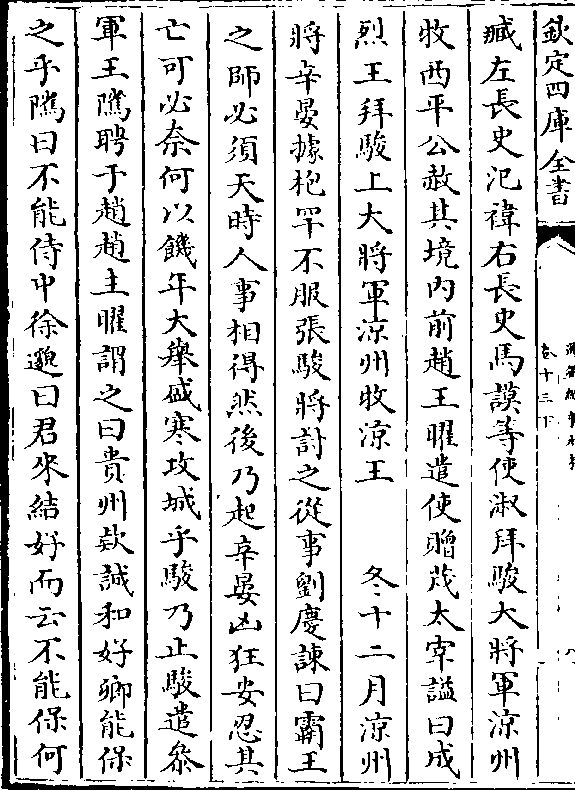 欽定四庫全書
卷十三下
臧左長史汜禕右長史馬謨等使淑拜駿大將軍涼州
牧西平公赦其境内前趙王曜遣使贈茂太宰謚曰成
烈王拜駿上大將軍涼州牧涼王 冬十二月涼州
將辛晏據枹罕不服張駿將討之從事劉慶諫曰霸王
之師必須天時人事相得然後乃起辛晏凶狂安忍其
亡可必奈何以饑年大舉盛寒攻城乎駿乃止駿遣叅
軍王隲聘于趙趙主曜謂之曰貴州欵誠和好卿能保
之乎隲曰不能侍中徐邈曰君來結好而云不能保何